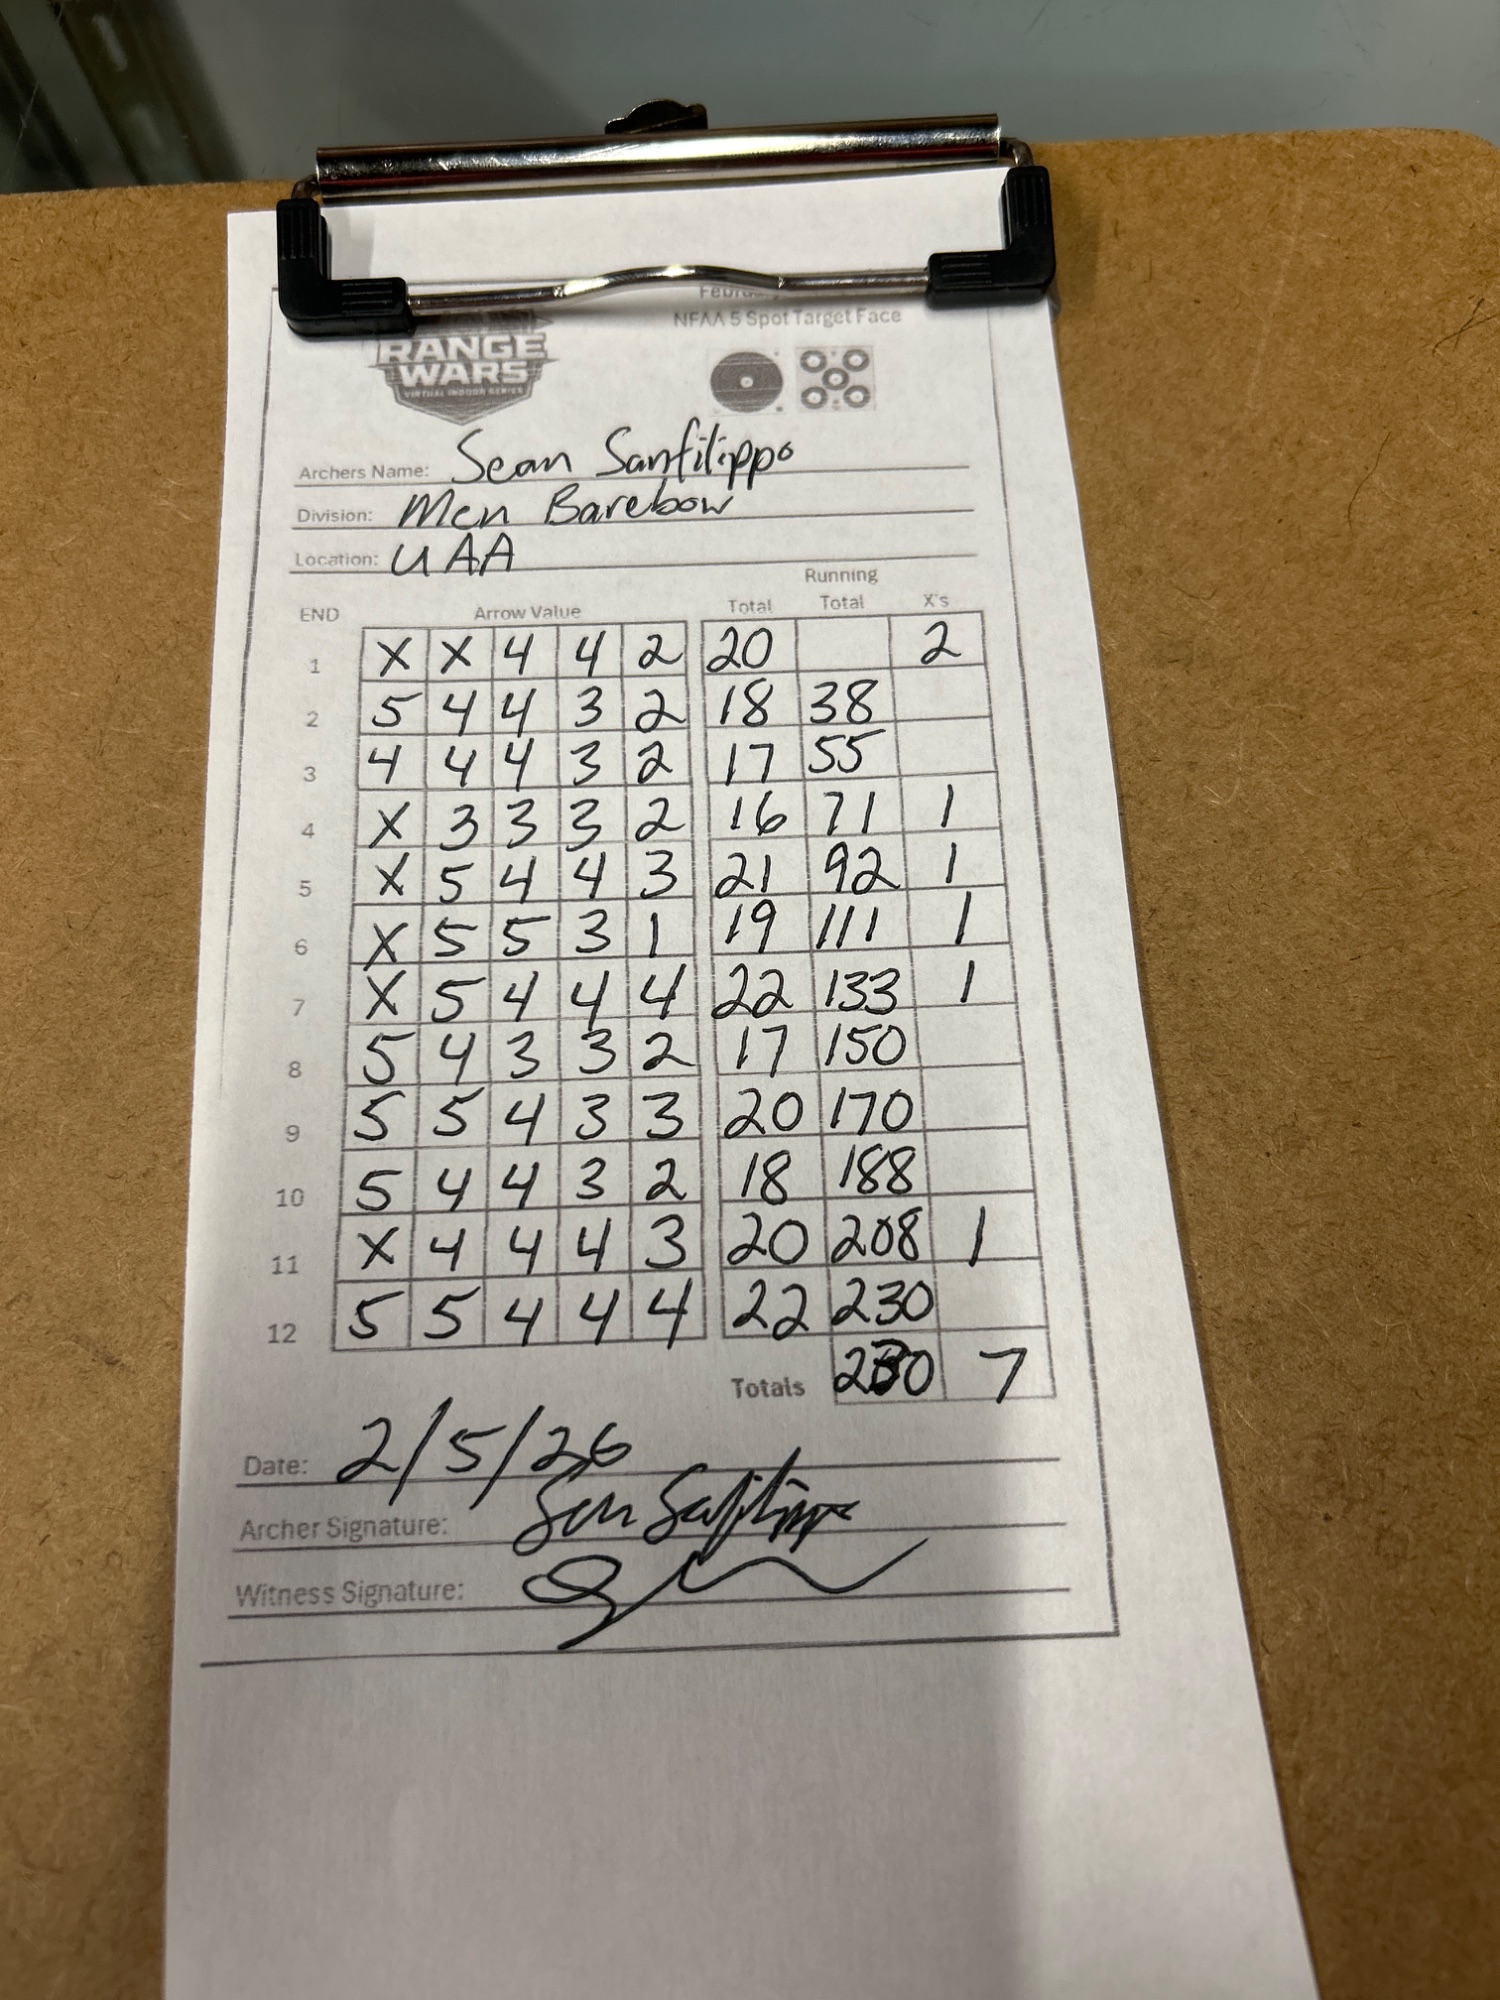 NFAA 5 Spot Target Face
RANGE
WARS
VIRTUAL INDOOR SERIES
Archers Name: Sean Sanfilippo
Division: Men Barebow
Location: UAA
Running
END Arrow Value Total Total X's
1 X X 4 4 2 20 2
2 5 4 4 3 2 18 38
3 4 4 4 3 2 17 55
4 X 3 3 3 2 16 71 1
5 X 5 4 4 3 21 92 1
6 X 5 5 3 1 19 111 1
7 X 5 4 4 4 22 133 1
8 5 4 3 3 2 17 150
9 5 5 4 3 3 20 170
10 5 4 4 3 2 18 188
11 X 4 4 4 3 20 208 1
12 5 5 4 4 4 22 230
Totals 230 7
Date: 2/5/26
Archer Signature: Sean Sanfilippo
Witness Signature: